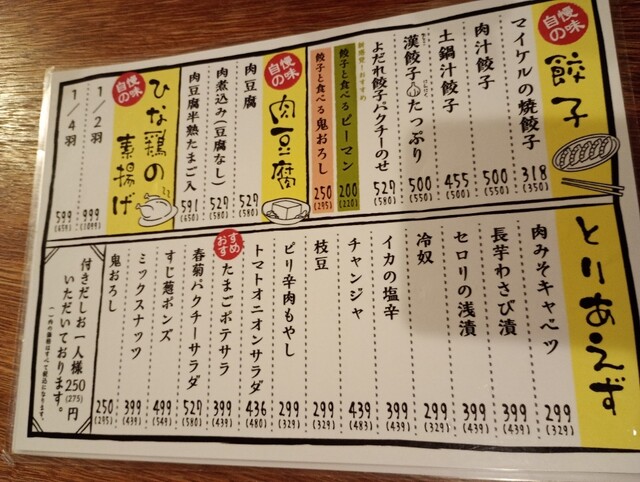 自慢の味
餃子
マイケルの焼餃子 318 (350)
肉汁餃子 500 (550)
土鍋汁餃子 455 (500)
漢餃子にんにくたっぷり 500 (550)
よだれ餃子パクチーのせ 527 (580)
餃子と食べるピーマン 200 (220)
餃子と食べる鬼おろし 250 (295)
自慢の味
肉豆腐
肉豆腐 527 (580)
肉煮込み(豆腐なし) 527 (580)
肉豆腐半熟たまご入 591 (650)
自慢の味
ひな鶏の素揚げ
1/2羽 999 (1099)
1/4羽 599 (659)
とりあえず
肉みそキャベツ 299 (329)
長芋わさび漬 399 (439)
セロリの浅漬 399 (439)
冷奴 299 (329)
イカの塩辛 399 (439)
チャンジャ 439 (483)
枝豆 299 (329)
ピリ辛肉もやし 299 (329)
トマトオニオンサラダ 436 (480)
おすすめ
たまごポテサラ 399 (439)
春菊パクチーサラダ 527 (580)
すじ葱ポンズ 499 (549)
ミックスナッツ 399 (439)
鬼おろし 250 (295)
付きだしお一人様250(275)円
いただいております。